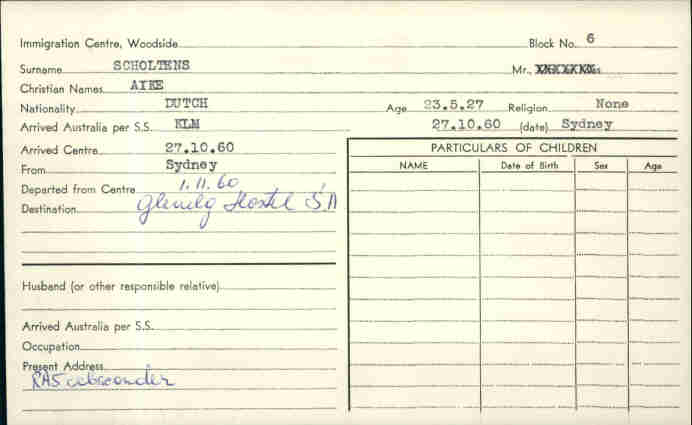 Immigration Centre, Woodside Block No. 6
Surname SCHOLTENS Mr.,
Christian Names AIKE
Nationality DUTCH Age 23.5.27 Religion None
Arrived Australia per S.S. KLM 27.10.60 (date) Sydney
Arrived Centre 27.10.60
From Sydney
Departed from Centre 1.11.60
Destination Glenelg Hostel S.A
PARTICULARS OF CHILDREN
NAME Date of Birth Sex Age
Husband (or other responsible relative)
Arrived Australia per S.S.
Occupation
Present Address
RAS absconder